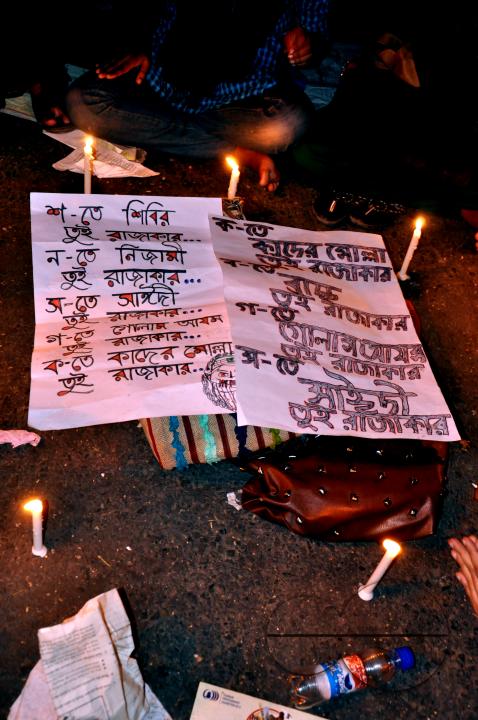 শ-তে শিবির
তুই রাজাকার...
ন-তে নিজামী
তুই রাজাকার...
স-তে সাঈদী
তুই রাজাকার...
গ-তে গোলাম আযম
তুই রাজাকার...
ক-তে কাদের মোল্লা
তুই রাজাকার...
ক-তে
কাদের মোল্লা
তুই রাজাকার
ব-তে
বাচ্চু
তুই রাজাকার
গ-তে
গোলাম আযম
তুই রাজাকার
স-তে
সাঈদী
তুই রাজাকার